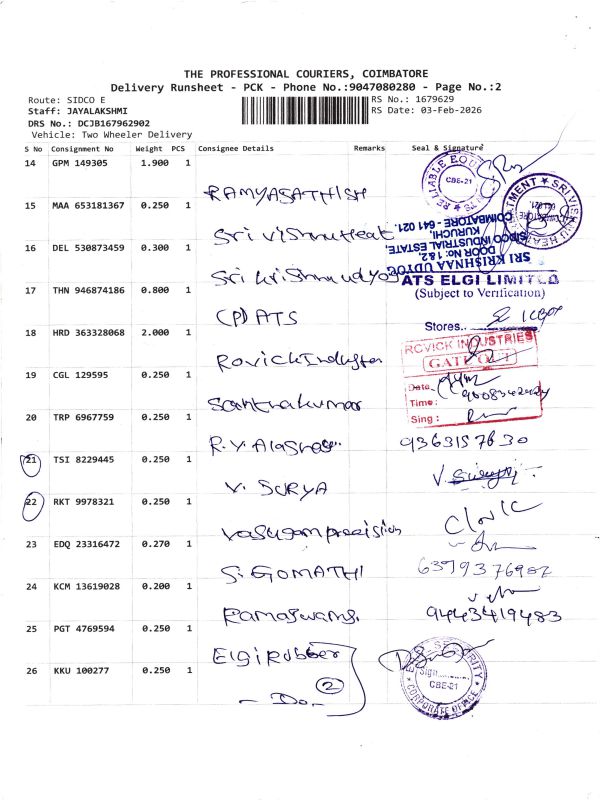 THE PROFESSIONAL COURIERS, COIMBATORE
Delivery Runsheet - PCK - Phone No.:9047080280 - Page No.:2
Route: SIDCO E
RS No.: 1679629
Staff: JAYALAKSHMI
RS Date: 03-Feb-2026
DRS No.: DCJB167962902
Vehicle: Two Wheeler Delivery
S No Consignment No Weight PCS Consignee Details Remarks Seal & Signature
14 GPM 149305 1.900 1 RAMYASATHISH
RELIABLE EQU
CBE-21
15 MAA 653181367 0.250 1 Sri vishnu Heat
SRI VISHNU HEA TREATMENT
16 DEL 530873459 0.300 1 Sri Krishna udyog
SRI KRISHNAA UDYOG
DOOR No: 1&2,
SIDCO INDUSTRIAL ESTATE,
KURUCHI,
COIMBATORE - 641 021.
17 THN 946874186 0.800 1 (P) ATS
ATS ELGI LIMITED
(Subject to Verification)
Stores..
18 HRD 363328068 2.000 1 Rovick Industries
ROVICK INDUSTRIES
GATE OUT
Date
Time :
Sing :
19 CGL 129595 0.250 1 Santhakumar
20 TRP 6967759 0.250 1 R.Y.
9363157630
21 TSI 8229445 0.250 1 V. SURYA
22 RKT 9978321 0.250 1 Vasugam precision
23 EDQ 23316472 0.270 1 S. GOMATHI
6379376987
24 KCM 13619028 0.200 1 Ramaswamy.
9443419483
25 PGT 4769594 0.250 1 Elgi Rubber
26 KKU 100277 0.250 1 - Do -
2
SECURITY
Sign
CBE-21
CORPORATE OFFICE